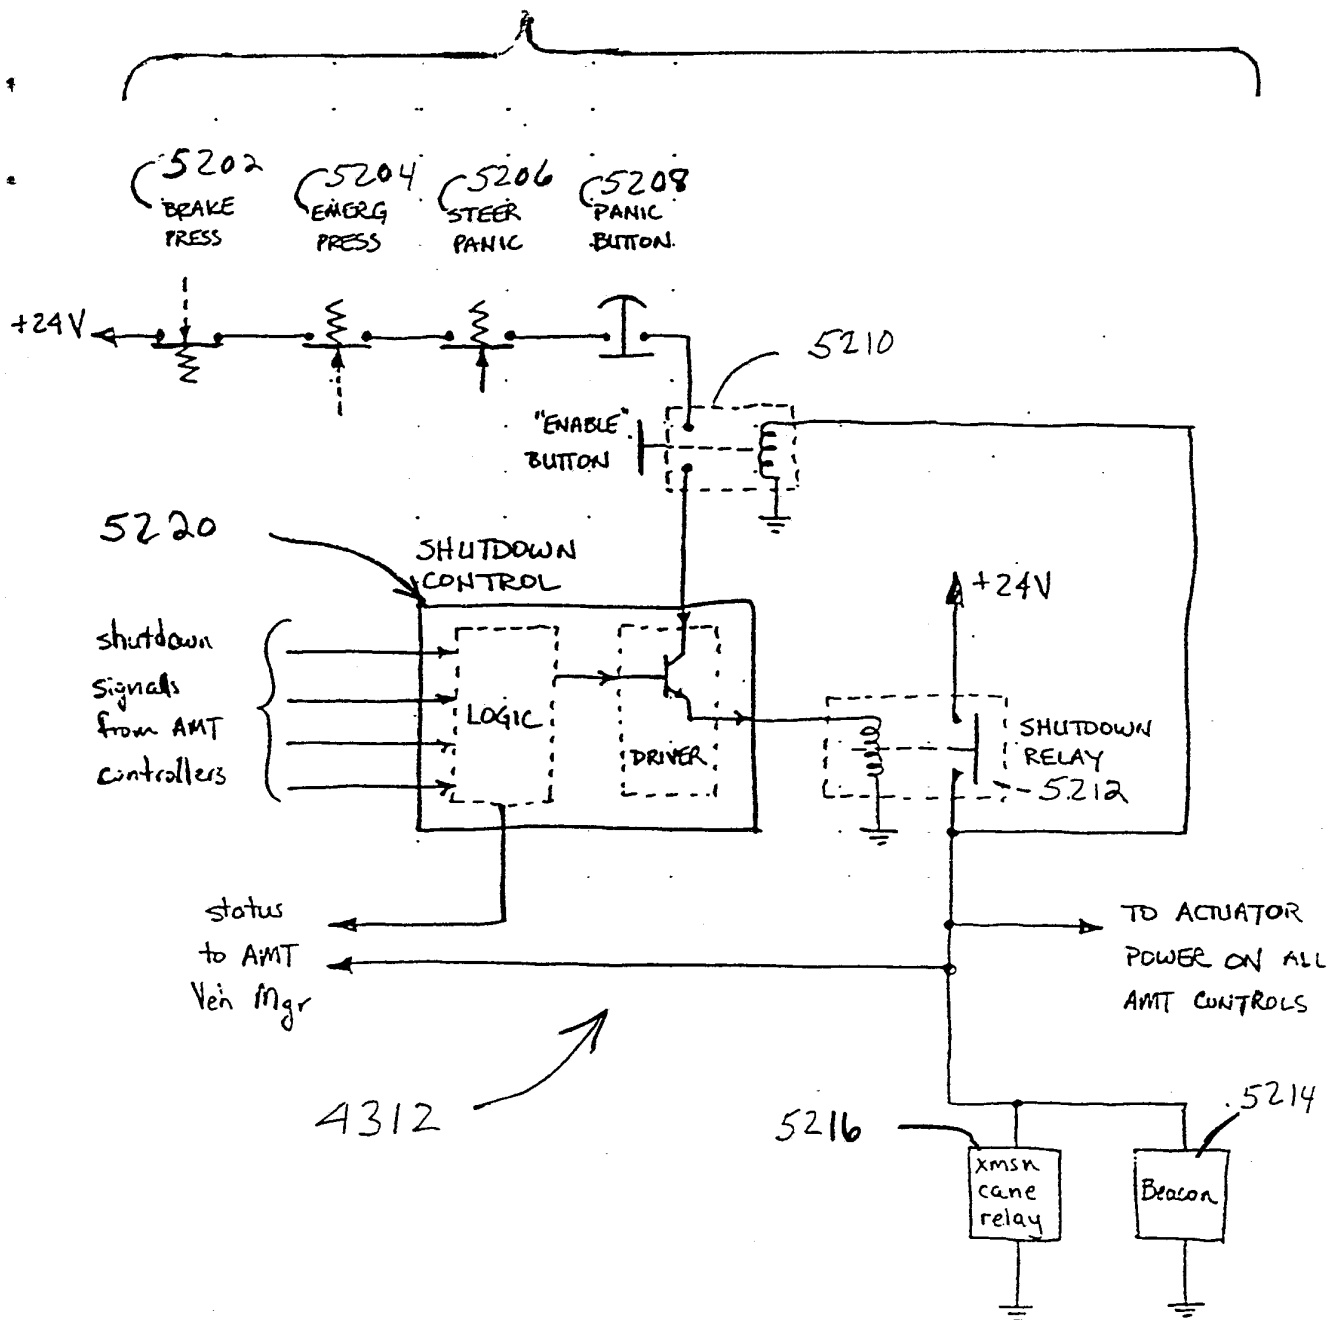 5202
BRAKE
PRESS
5204
EMERG
PRESS
5206
STEER
PANIC
5208
PANIC
BUTTON
+24V
5210
"ENABLE"
BUTTON
5220
SHUTDOWN
CONTROL
+24V
shutdown
signals
from AMT
controllers
LOGIC
DRIVER
SHUTDOWN
RELAY
5212
status
to AMT
Veh Mgr
TO ACTUATOR
POWER ON ALL
AMT CONTROLS
4312
5216
5214
xmsn
cane
relay
Beacon